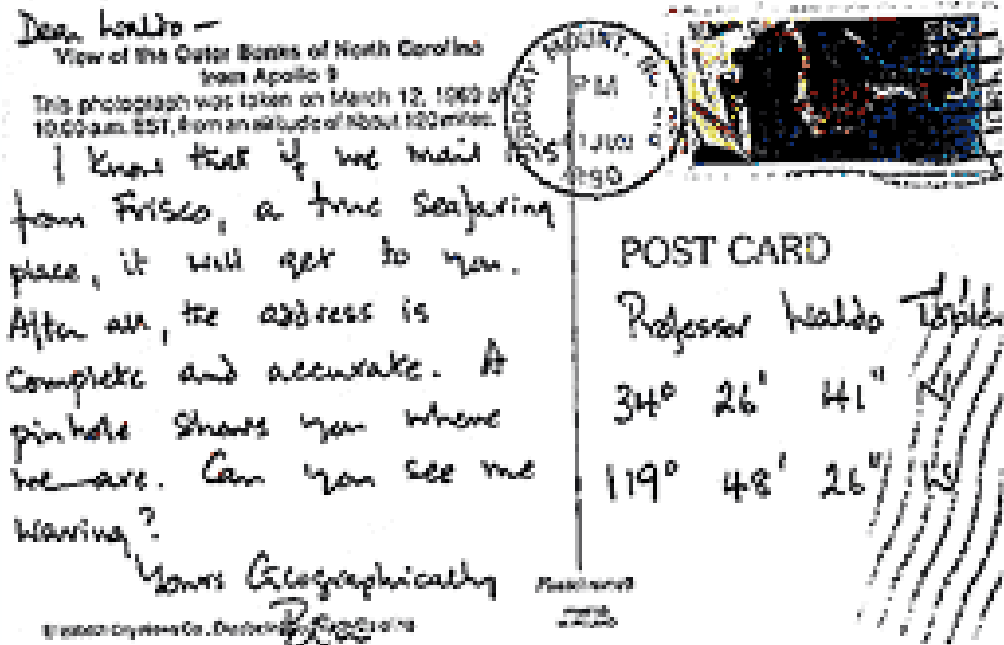 Dear Waldo -
View of the Outer Banks of North Carolina
from Apollo 9
This photograph was taken on March 12, 1969 at
10:00 a.m. EST, from an altitude of about 120 miles.
I know that if we mail this
from Frisco, a true seafaring
place, it will get to you.
After all, the address is
complete and accurate. A
pinhole shows you where
we are. Can you see me
waving?
Yours Geographically
ROCKY MOUNT, N.C.
PM
1 JUN
1990
POST CARD
Professor Waldo Tobler
34° 26' 41"
119° 48' 26"